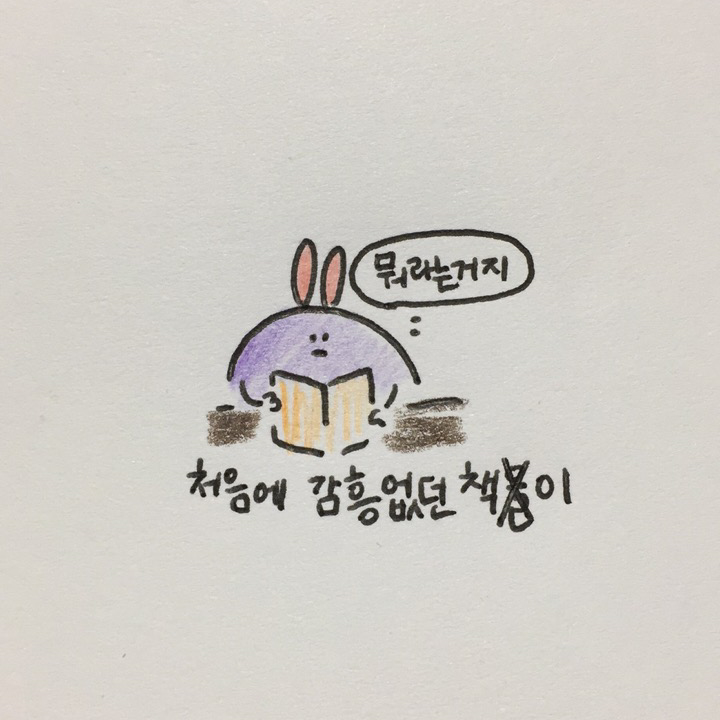 뭐라는거지
처음에 감흥없던 책이